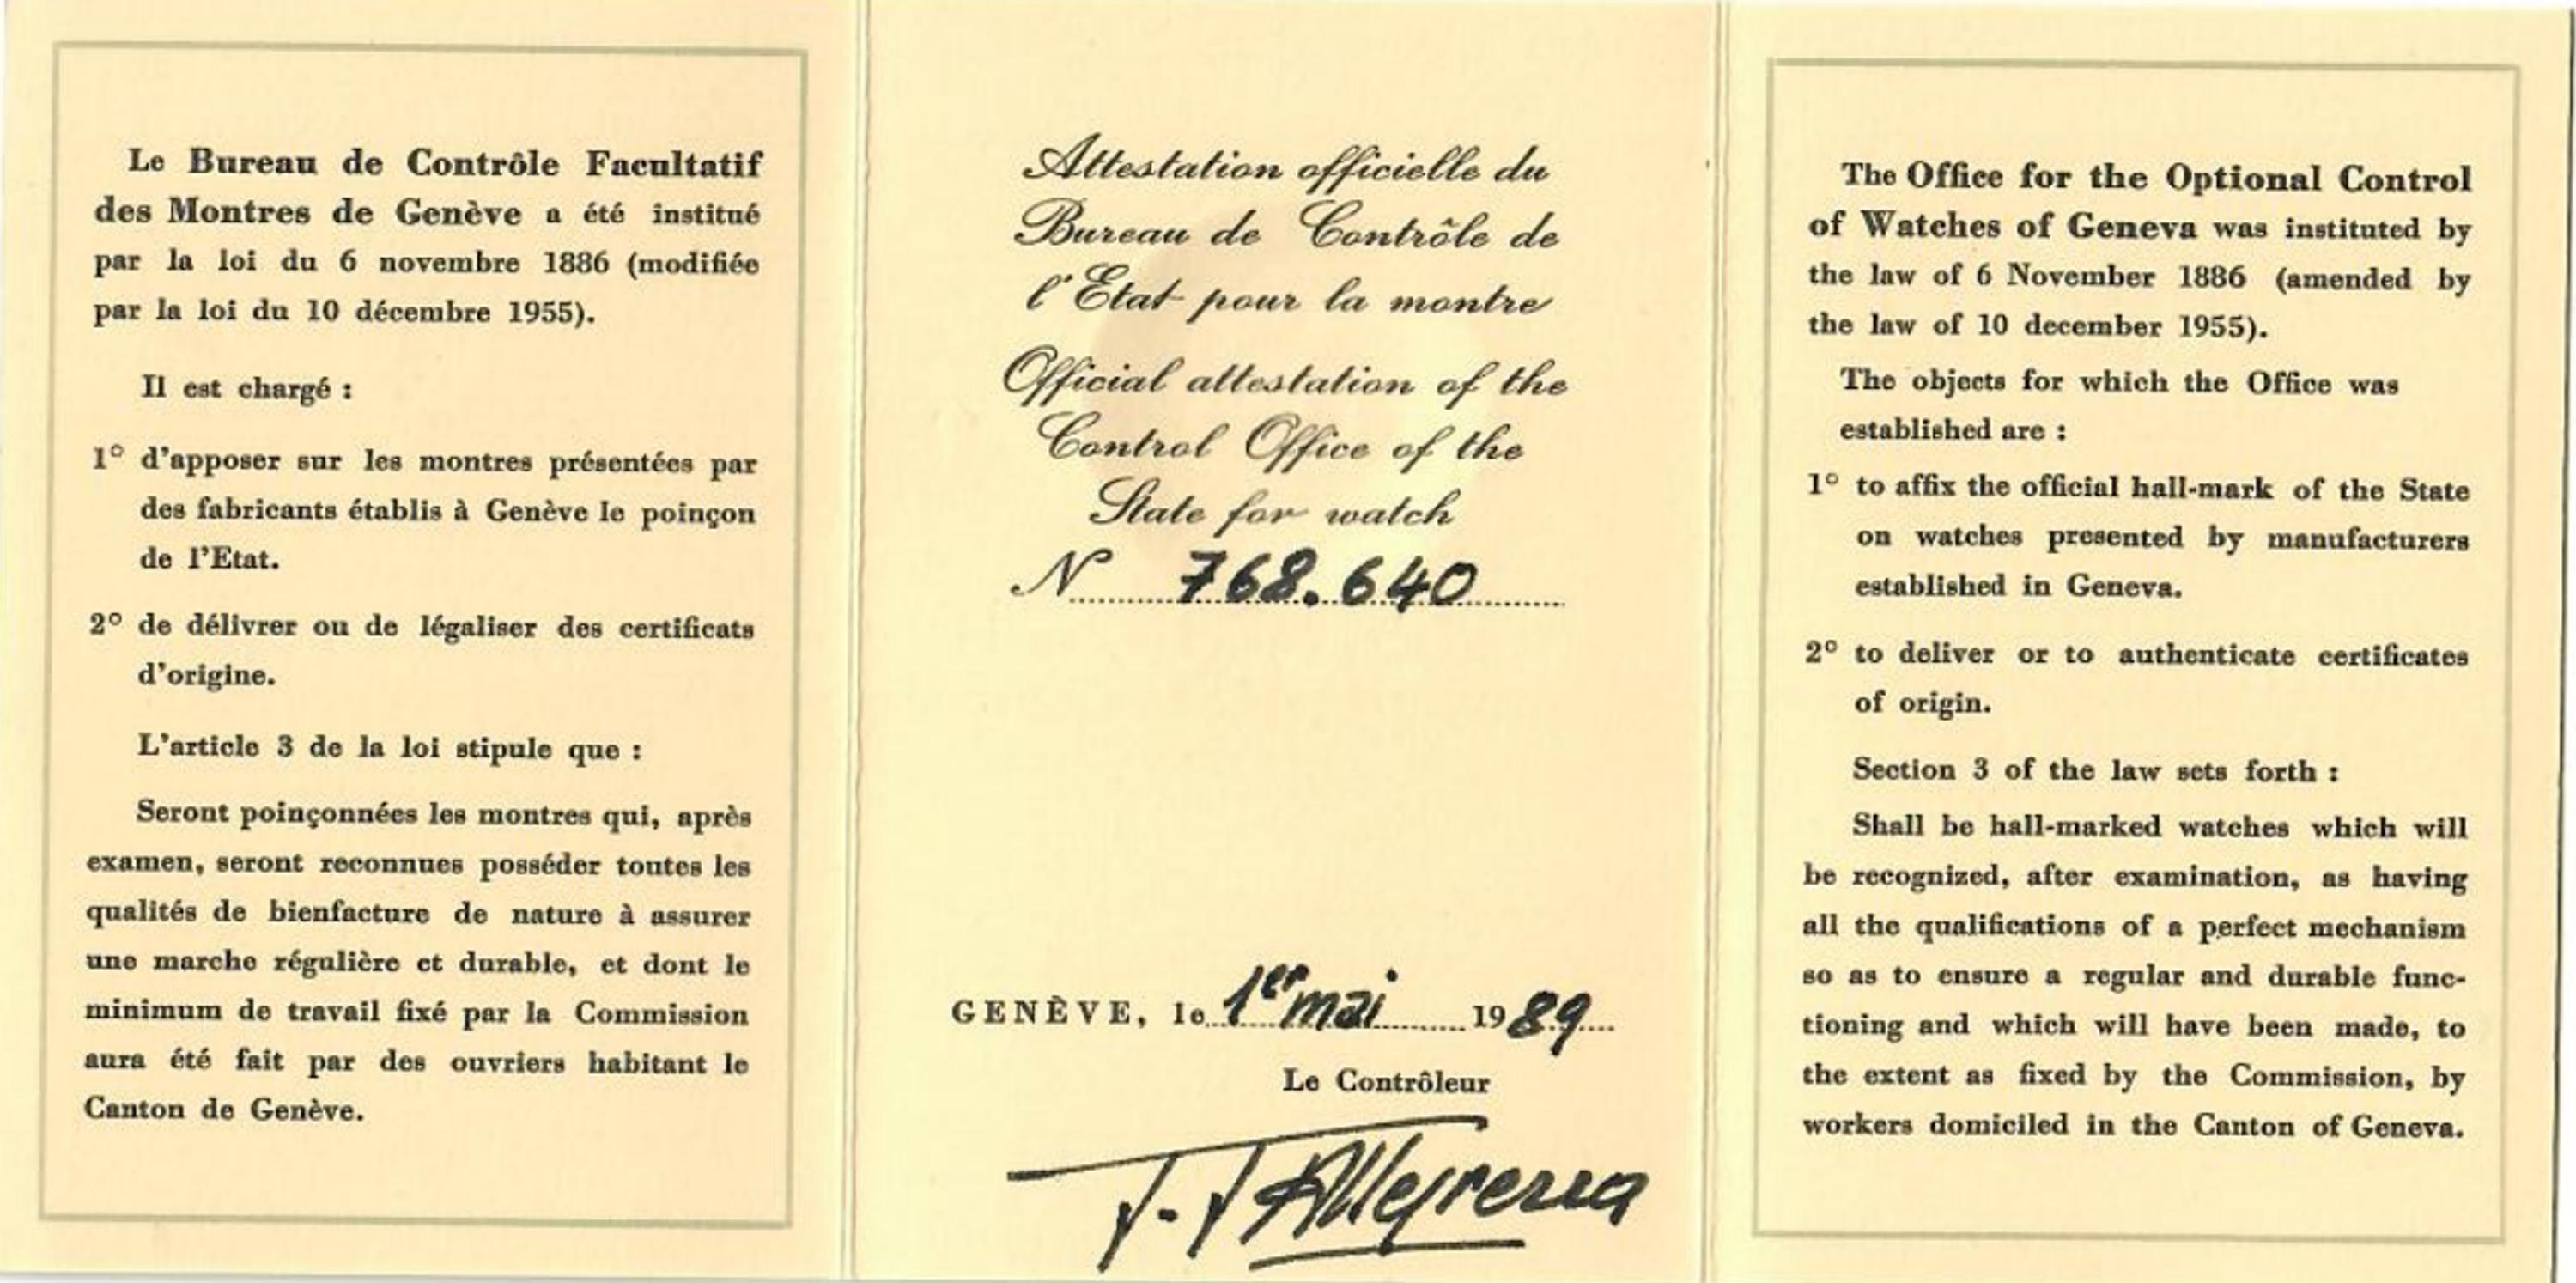 Le Bureau de Contrôle Facultatif
des Montres de Genève a été institué
par la loi du 6 novembre 1886 (modifiée
par la loi du 10 décembre 1955).
Il est chargé :
1° d'apposer sur les montres présentées par
des fabricants établis à Genève le poinçon
de l'Etat.
2° de délivrer ou de légaliser des certificats
d'origine.
L'article 3 de la loi stipule que :
Seront poinçonnées les montres qui, après
examen, seront reconnues posséder toutes les
qualités de bienfacture de nature à assurer
une marche régulière et durable, et dont le
minimum de travail fixé par la Commission
aura été fait par des ouvriers habitant le
Canton de Genève.
Attestation officielle du
Bureau de Contrôle de
l'Etat pour la montre
Official attestation of the
Control Office of the
State for watch
N 768.640
GENÈVE, le 1er mai 1989
Le Contrôleur
The Office for the Optional Control
of Watches of Geneva was instituted by
the law of 6 November 1886 (amended by
the law of 10 december 1955).
The objects for which the Office was
established are :
1° to affix the official hall-mark of the State
on watches presented by manufacturers
established in Geneva.
2° to deliver or to authenticate certificates
of origin.
Section 3 of the law sets forth :
Shall be hall-marked watches which will
be recognized, after examination, as having
all the qualifications of a perfect mechanism
so as to ensure a regular and durable func-
tioning and which will have been made, to
the extent as fixed by the Commission, by
workers domiciled in the Canton of Geneva.